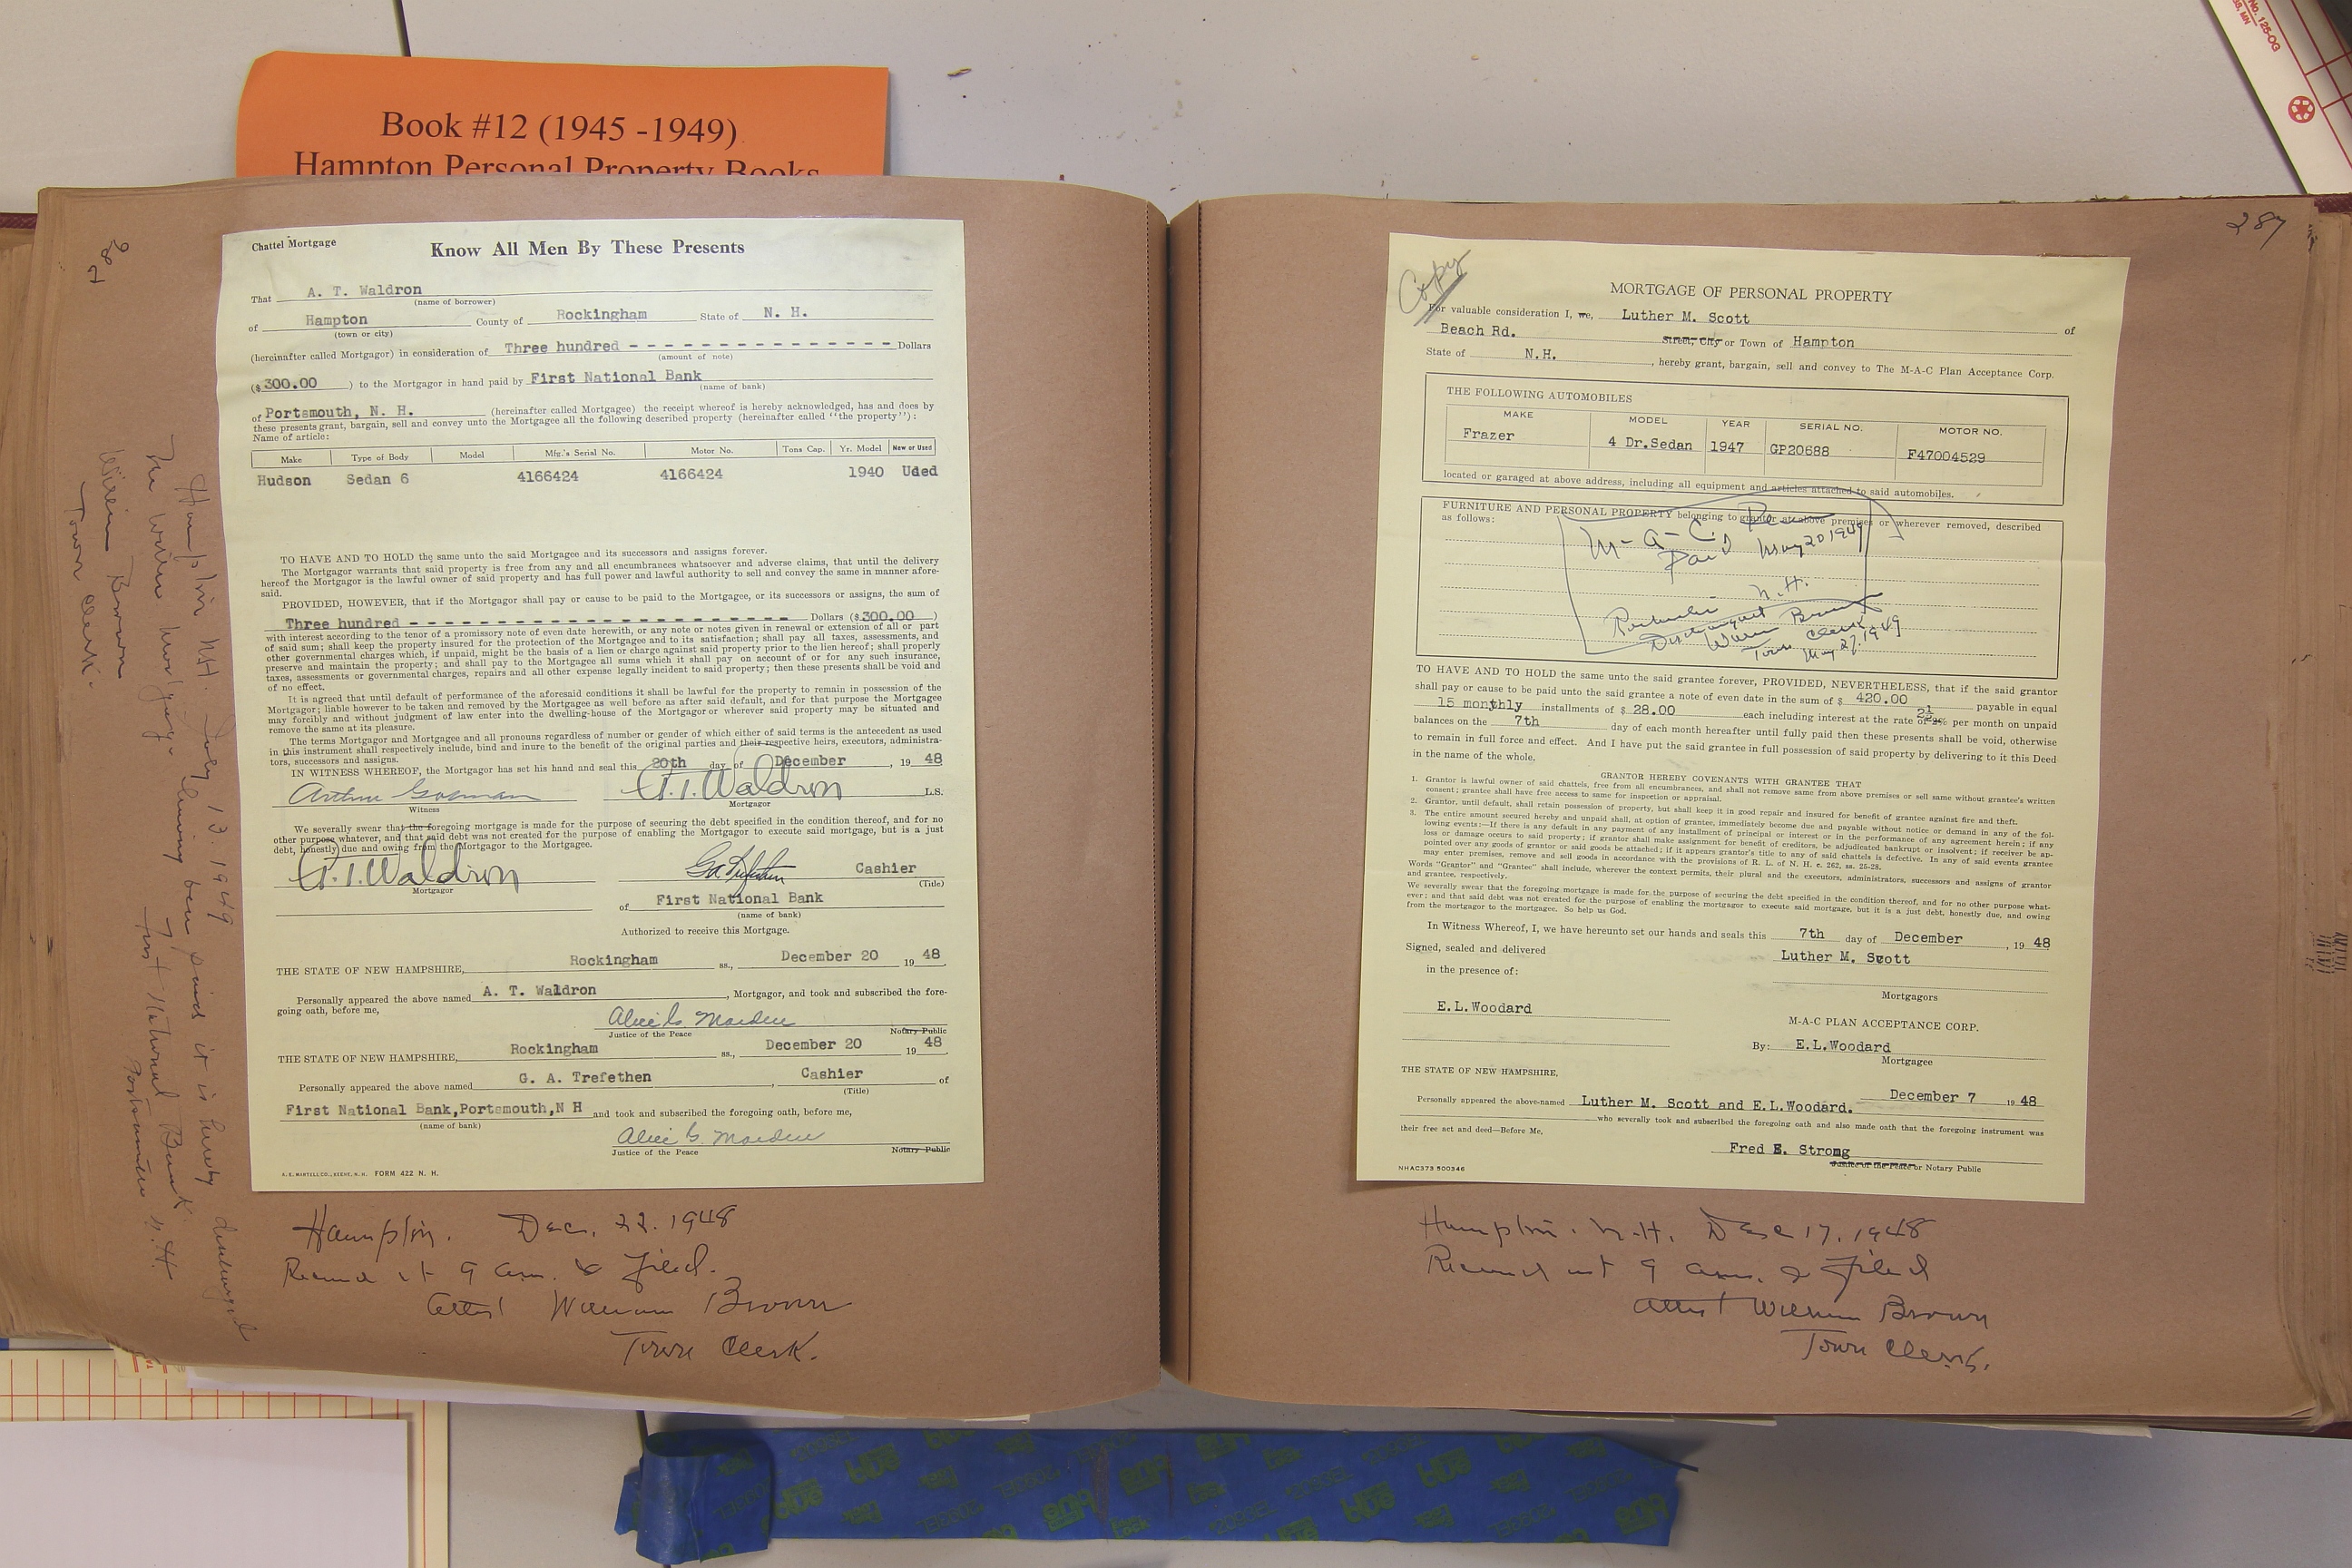 Book #12 (1945 -1949)
Hampton Personal Property Books
Chattel Mortgage
Know All Men By These Presents
That A. T. Waldron
(name of borrower)
of Hampton County of Rockingham State of N. H.
(town or city)
(hereinafter called Mortgagor) in consideration of Three hundred - - - - - - - - - - - - - - - Dollars
(amount of note)
($ 300.00 ) to the Mortgagor in hand paid by First National Bank
(name of bank)
of Portsmouth, N. H. (hereinafter called Mortgagee) the receipt whereof is hereby acknowledged, has and does by
these presents grant, bargain, sell and convey unto the Mortgagee all the following described property (hereinafter called "the property"):
Name of article:
Make Type of Body Model Mfg.'s Serial No. Motor No. Tons Cap. Yr. Model New or Used
Hudson Sedan 6 4166424 4166424 1940 Uded
TO HAVE AND TO HOLD the same unto the said Mortgagee and its successors and assigns forever.
The Mortgagor warrants that said property is free from any and all encumbrances whatsoever and adverse claims, that until the delivery
hereof the Mortgagor is the lawful owner of said property and has full power and lawful authority to sell and convey the same in manner afore-
said.
PROVIDED, HOWEVER, that if the Mortgagor shall pay or cause to be paid to the Mortgagee, or its successors or assigns, the sum of
Three hundred - - - - - - - - - - - - - - - - - - - - - Dollars ($ 300.00 )
with interest according to the tenor of a promissory note of even date herewith, or any note or notes given in renewal or extension of all or part
of said sum; shall keep the property insured for the protection of the Mortgagee and to its satisfaction; shall pay all taxes, assessments, and
other governmental charges which, if unpaid, might be the basis of a lien or charge against said property prior to the lien hereof; shall properly
preserve and maintain the property; and shall pay to the Mortgagee all sums which it shall pay on account of or for any such insurance,
taxes, assessments or governmental charges, repairs and all other expense legally incident to said property; then these presents shall be void and
of no effect.
It is agreed that until default of performance of the aforesaid conditions it shall be lawful for the property to remain in possession of the
Mortgagor; liable however to be taken and removed by the Mortgagee as well before as after said default, and for that purpose the Mortgagee
may forcibly and without judgment of law enter into the dwelling-house of the Mortgagor or wherever said property may be situated and
remove the same at its pleasure.
The terms Mortgagor and Mortgagee and all pronouns regardless of number or gender of which either of said terms is the antecedent as used
in this instrument shall respectively include, bind and inure to the benefit of the original parties and their respective heirs, executors, administra-
tors, successors and assigns.
IN WITNESS WHEREOF, the Mortgagor has set his hand and seal this 20th day of December , 19 48
A. T. Waldron L.S.
Witness Mortgagor
We severally swear that the foregoing mortgage is made for the purpose of securing the debt specified in the condition thereof, and for no
other purpose whatever, and that said debt was not created for the purpose of enabling the Mortgagor to execute said mortgage, but is a just
debt, honestly due and owing from the Mortgagor to the Mortgagee.
A. T. Waldron G A Trefethen Cashier
Mortgagor (Title)
of First National Bank
(name of bank)
Authorized to receive this Mortgage.
THE STATE OF NEW HAMPSHIRE, Rockingham ss., December 20 19 48
Personally appeared the above named A. T. Waldron , Mortgagor, and took and subscribed the fore-
going oath, before me,
Justice of the Peace Notary Public
THE STATE OF NEW HAMPSHIRE, Rockingham ss., December 20 19 48
Personally appeared the above named G. A. Trefethen , Cashier of
(Title)
First National Bank,Portsmouth,N H and took and subscribed the foregoing oath, before me,
(name of bank)
Justice of the Peace Notary Public
FORM 422 N. H.
Hampton. Dec. 22. 1948
Received at 9 am. & filed.
Attest William Brown
Town Clerk.
Hampton N.H. July 13. 1949
The within mortgage having been paid it is hereby discharged
First National Bank
Portsmouth N.H.
William Brown
Town Clerk.
287
Copy
MORTGAGE OF PERSONAL PROPERTY
For valuable consideration I, we, Luther M. Scott of
Beach Rd. Street, City or Town of Hampton
State of N.H. , hereby grant, bargain, sell and convey to The M-A-C Plan Acceptance Corp.
THE FOLLOWING AUTOMOBILES
MAKE MODEL YEAR SERIAL NO. MOTOR NO.
Frazer 4 Dr.Sedan 1947 GP20688 F47004529
located or garaged at above address, including all equipment and articles attached to said automobiles.
FURNITURE AND PERSONAL PROPERTY belonging to grantor at above premises or wherever removed, described
as follows:
M-A-C. Plan
Paid May 20 1949
N.H.
Discharged
William Brown
Town Clerk
May 27. 1949
TO HAVE AND TO HOLD the same unto the said grantee forever, PROVIDED, NEVERTHELESS, that if the said grantor
shall pay or cause to be paid unto the said grantee a note of even date in the sum of $ 420.00 payable in equal
15 monthly installments of $ 28.00 each including interest at the rate of 2½ per month on unpaid
balances on the 7th day of each month hereafter until fully paid then these presents shall be void, otherwise
to remain in full force and effect. And I have put the said grantee in full possession of said property by delivering to it this Deed
in the name of the whole.
GRANTOR HEREBY COVENANTS WITH GRANTEE THAT
1. Grantor is lawful owner of said chattels, free from all encumbrances, and shall not remove same from above premises or sell same without grantee's written
consent; grantee shall have free access to same for inspection or appraisal.
2. Grantor, until default, shall retain possession of property, but shall keep it in good repair and insured for benefit of grantee against fire and theft.
3. The entire amount secured hereby and unpaid shall, at option of grantee, immediately become due and payable without notice or demand in any of the fol-
lowing events:—If there is any default in any payment of any installment of principal or interest or in the performance of any agreement herein; if any
loss or damage occurs to said property; if grantor shall make assignment for benefit of creditors, be adjudicated bankrupt or insolvent; if receiver be ap-
pointed over any goods of grantor or said goods be attached; if it appears grantor's title to any of said chattels is defective. In any of said events grantee
may enter premises, remove and sell goods in accordance with the provisions of R. L. of N. H. c. 262, ss. 25-28.
Words "Grantor" and "Grantee" shall include, wherever the context permits, their plural and the executors, administrators, successors and assigns of grantor
and grantee, respectively.
We severally swear that the foregoing mortgage is made for the purpose of securing the debt specified in the condition thereof, and for no other purpose what-
ever; and that said debt was not created for the purpose of enabling the mortgagor to execute said mortgage, but it is a just debt, honestly due, and owing
from the mortgagor to the mortgagee. So help us God.
In Witness Whereof, I, we have hereunto set our hands and seals this 7th day of December , 19 48
Signed, sealed and delivered Luther M. Scott
in the presence of:
Mortgagors
E.L.Woodard
M-A-C PLAN ACCEPTANCE CORP.
By: E.L.Woodard
Mortgagee
THE STATE OF NEW HAMPSHIRE,
December 7 19 48
Personally appeared the above-named Luther M. Scott and E.L.Woodard.
who severally took and subscribed the foregoing oath and also made oath that the foregoing instrument was
their free act and deed—Before Me,
Fred E. Strong
Justice of the Peace or Notary Public
NHAC373 500346
Hampton. N.H. Dec 17. 1948
Received at 9 am. & filed
Attest William Brown
Town Clerk.